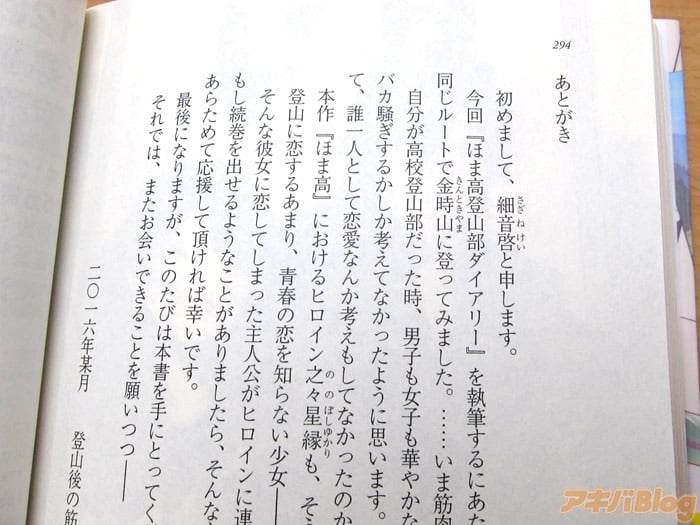 294
あとがき
初めまして、細音啓と申します。
今回『ほま高登山部ダイアリー』を執筆するにあた
同じルートで金時山に登ってみました。……いま筋肉
自分が高校登山部だった時、男子も女子も華やかな
バカ騒ぎするかしか考えてなかったように思います。
て、誰一人として恋愛なんか考えもしてなかったのか
本作『ほま高』におけるヒロイン之々星縁も、そう
登山に恋するあまり、青春の恋を知らない少女――
そんな彼女に恋してしまった主人公がヒロインに連
もし続巻を出せるようなことがありましたら、そんな
あらためて応援して頂ければ幸いです。
最後になりますが、このたびは本書を手にとってく
それでは、またお会いできることを願いつつ――
二〇一六年某月
登山後の筋
アキバBlog